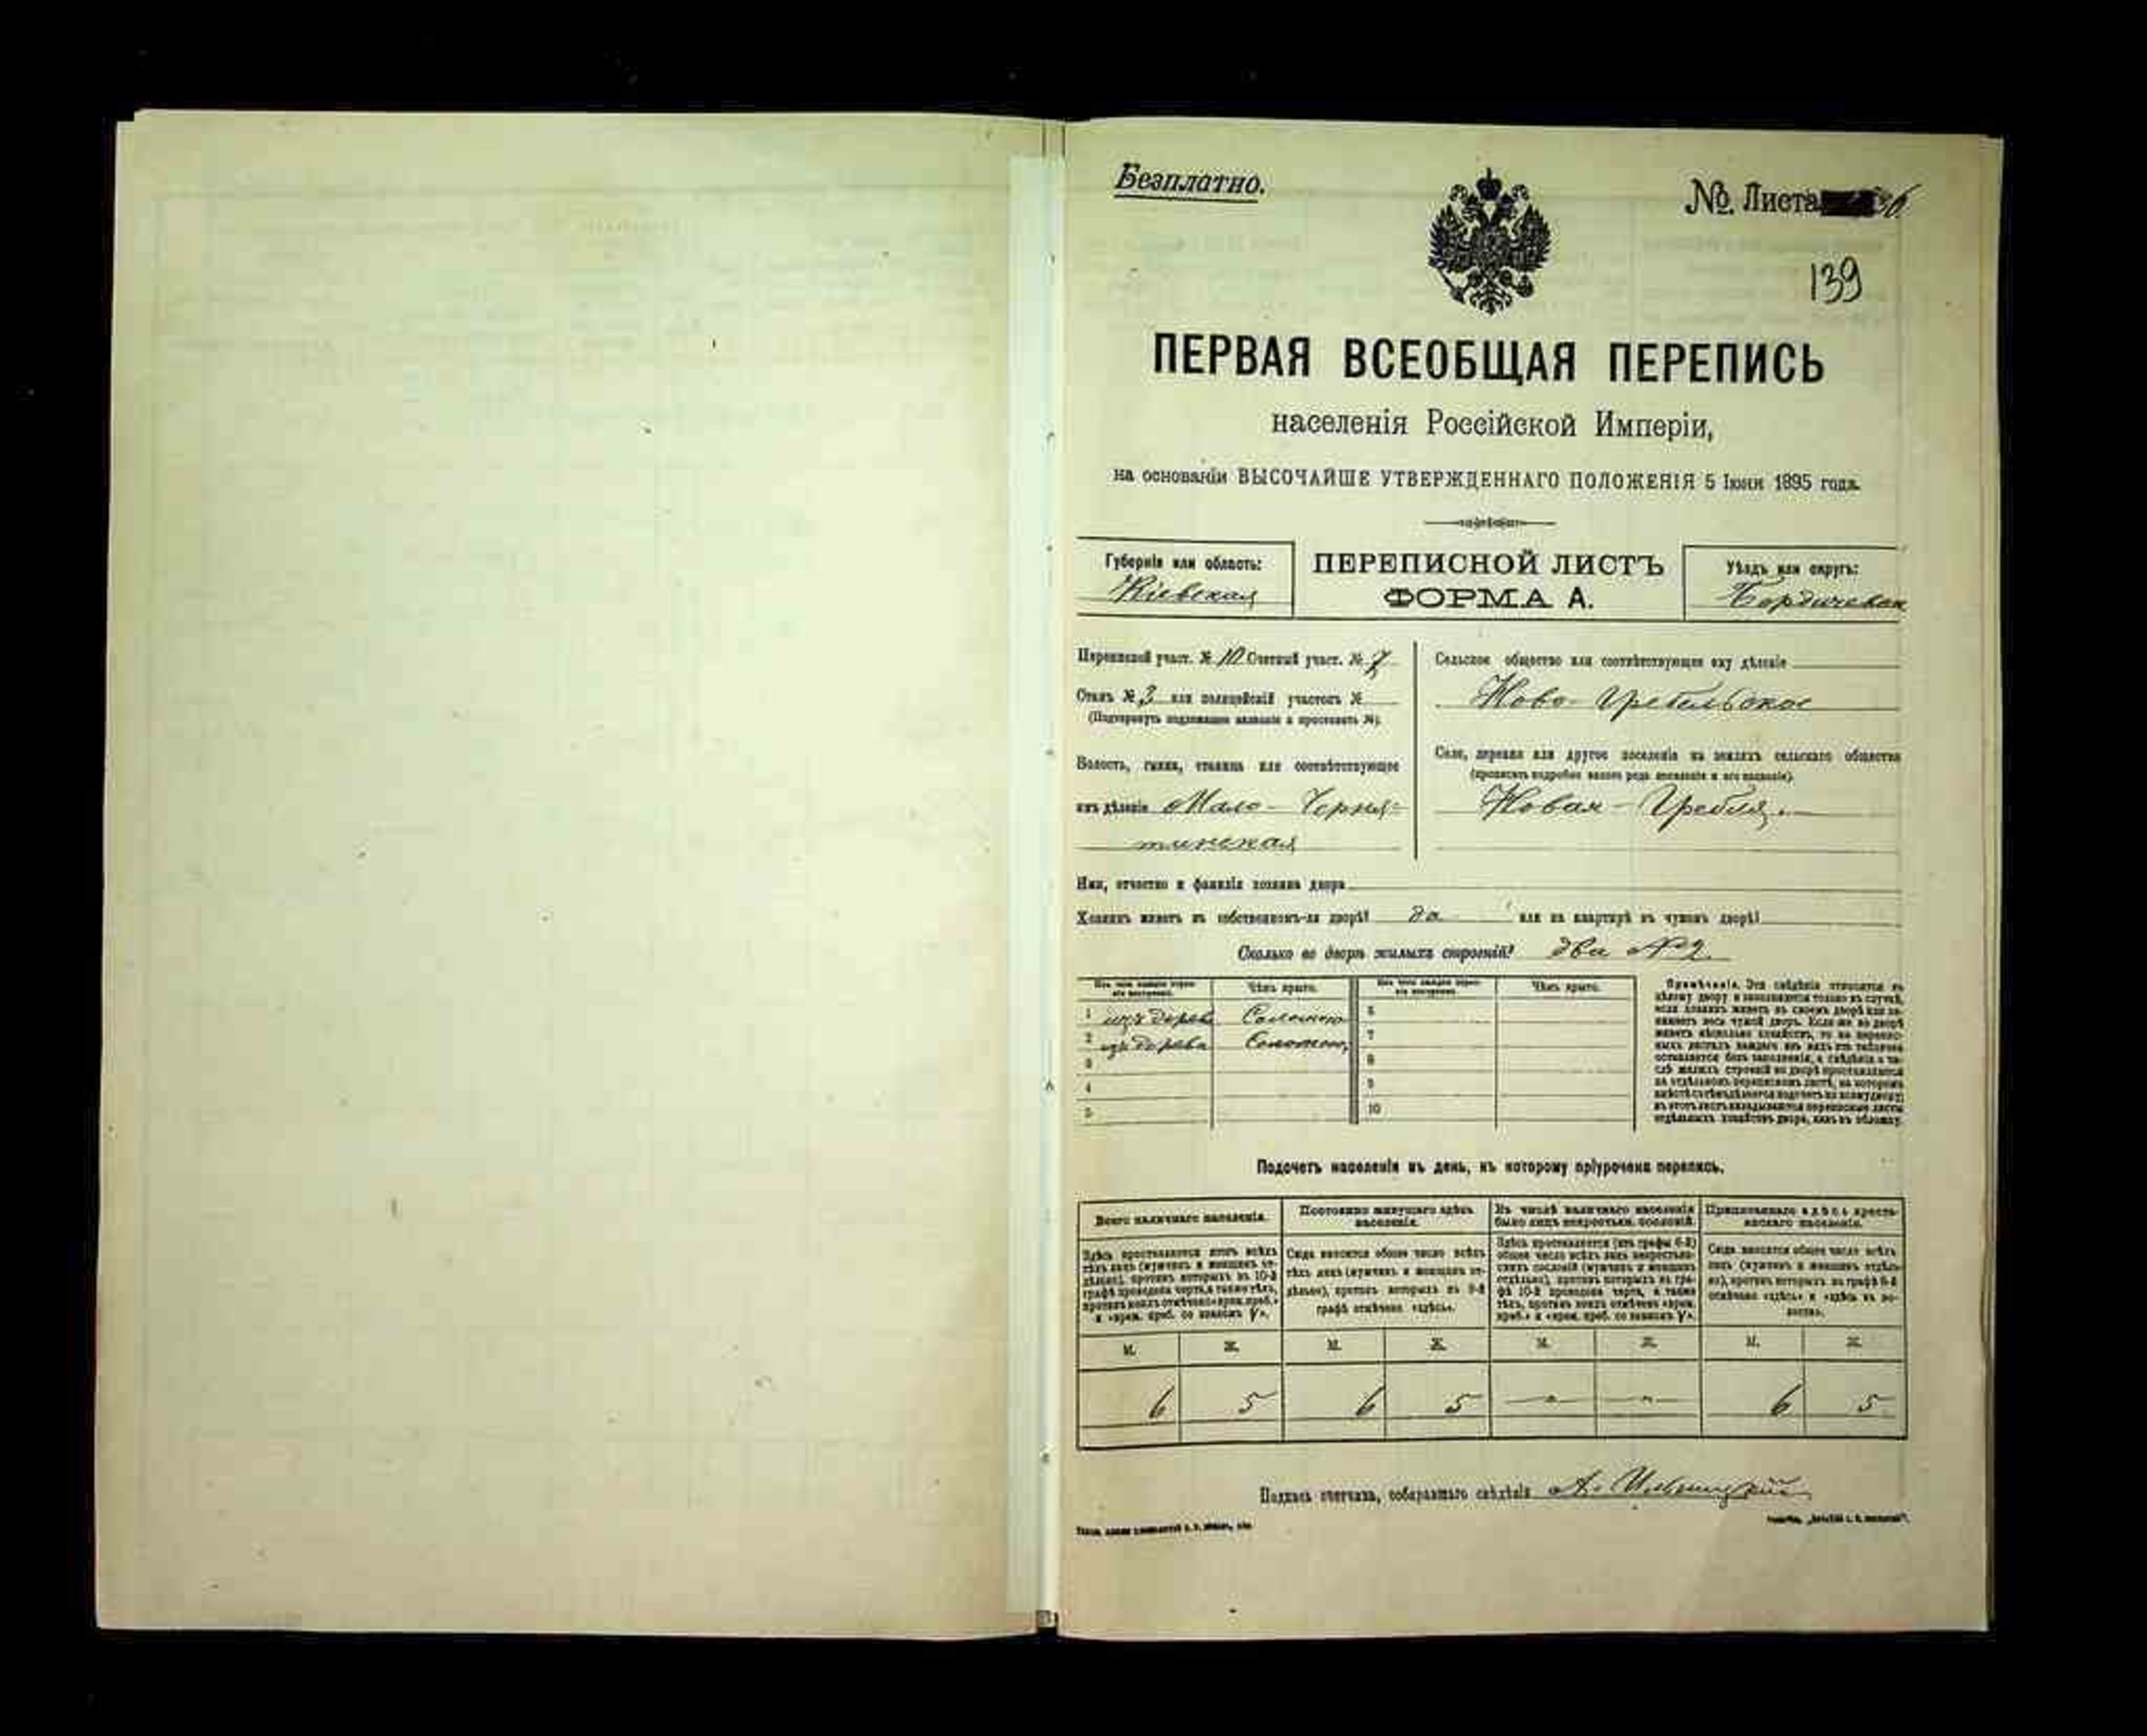 Безплатно.
№ Листа 36
139
ПЕРВАЯ ВСЕОБЩАЯ ПЕРЕПИСЬ
населенія Россійской Имперіи,
на основаніи ВЫСОЧАЙШЕ УТВЕРЖДЕННАГО ПОЛОЖЕНІЯ 5 Іюня 1895 года.
Губернія или область:
Кіевская
ПЕРЕПИСНОЙ ЛИСТЪ
ФОРМА А.
Уѣздъ или округъ:
Бердичевскій
Переписной участ. № 10 Счетный участ. № 7
Станъ № 3 или полицейскій участокъ №
(Подчеркнуть подлежащее названіе и проставить №).
Волость, гмина, станица или соотвѣтствующее
имъ дѣленіе Мало-Черня-
тинская
Сельское общество или соотвѣтствующее ему дѣленіе
Ново-Гребельское
Село, деревня или другое поселеніе на земляхъ сельскаго общества
(прописать подробно какого рода поселеніе и его названіе).
Новая-Гребля.
Имя, отчество и фамилія хозяина двора
Хозяинъ живетъ въ собственномъ-ли дворѣ? да или на квартирѣ въ чужомъ дворѣ?
Сколько во дворѣ жилыхъ строеній? два №2.
Изъ чего каждое строе-
ніе построено.
Чѣмъ крыто.
Изъ чего каждое строе-
ніе построено.
Чѣмъ крыто.
1 изъ дерева Соломою 6
2 изъ дерева Соломою 7
3 8
4 9
5 10
Примѣчаніе. Эти свѣдѣнія относятся къ
цѣлому двору и заполняются только въ случаѣ,
если хозяинъ живетъ въ своемъ дворѣ или за-
нимаетъ весь чужой дворъ. Если же во дворѣ
живетъ нѣсколько хозяйствъ, то на перепис-
ныхъ листахъ каждаго изъ нихъ эта табличка
оставляется безъ заполненія, а свѣдѣнія о чи-
слѣ жилыхъ строеній во дворѣ проставляются
на отдѣльномъ переписномъ листѣ, на которомъ
вмѣстѣ съ тѣмъ дѣлается подсчетъ по всему двору;
въ этотъ листъ вкладываются переписные листы
отдѣльныхъ хозяйствъ двора, какъ въ обложку.
Подсчетъ населенія въ день, къ которому пріурочена перепись.
Всего наличнаго населенія.
Постоянно живущаго здѣсь
населенія.
Въ числѣ наличнаго населенія
было лицъ некрестьян. сословій.
Приписаннаго здѣсь кресть-
янскаго населенія.
Здѣсь проставляется итогъ всѣхъ
тѣхъ лицъ (мужчинъ и женщинъ от-
дѣльно), противъ которыхъ въ 10-й
графѣ проведена черта, а также тѣхъ,
противъ коихъ отмѣчено «врем. преб.»
и «врем. преб. со знакомъ V».
Сюда вносится общее число всѣхъ
тѣхъ лицъ (мужчинъ и женщинъ от-
дѣльно), противъ которыхъ въ 9-й
графѣ отмѣчено «здѣсь».
Здѣсь проставляется (изъ графы 6-й)
общее число всѣхъ лицъ некрестьян-
скихъ сословій (мужчинъ и женщинъ
отдѣльно), противъ которыхъ въ гра-
фѣ 10-й проведена черта, а также
тѣхъ, противъ коихъ отмѣчено «врем.
преб.» и «врем. преб. со знакомъ V».
Сюда вносится общее число всѣхъ
лицъ (мужчинъ и женщинъ отдѣль-
но), противъ которыхъ въ графѣ 8-й
отмѣчено «здѣсь» и «здѣсь въ во-
лости».
М. Ж. М. Ж. М. Ж. М. Ж.
6 5 6 5 — — 6 5
Подпись счетчика, собиравшаго свѣдѣнія А.